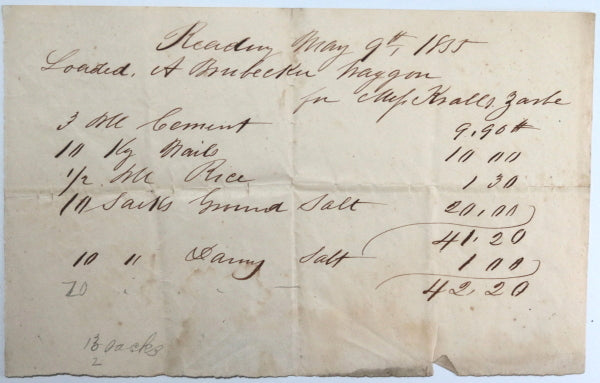 Reading May 9th, 1855
Loaded, A Brubecker Waggon
for Mess Kralls, Zarbe
3 bbl Cement 9,90
10 Kg Nails 10 00
1/2 bbl Rice 1 30
10 Sacks Ground Salt 20,00
41,20
10 " Dairy Salt 1 00
42,20
20
13 sacks
2